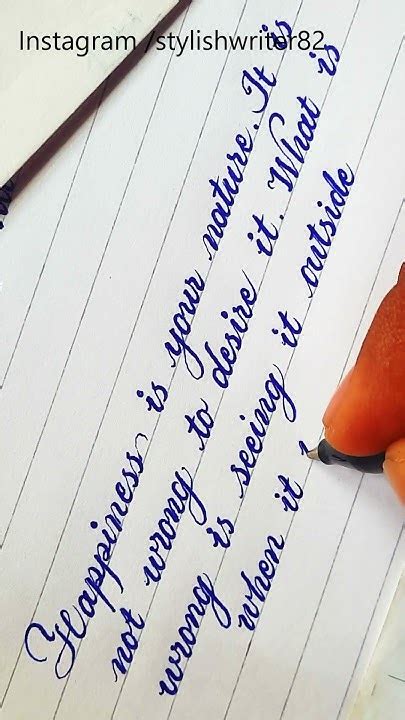 Instagram /stylishwriter82
Happiness is your nature. It is
not wrong to desire it. What is
wrong is seeing it outside
when it